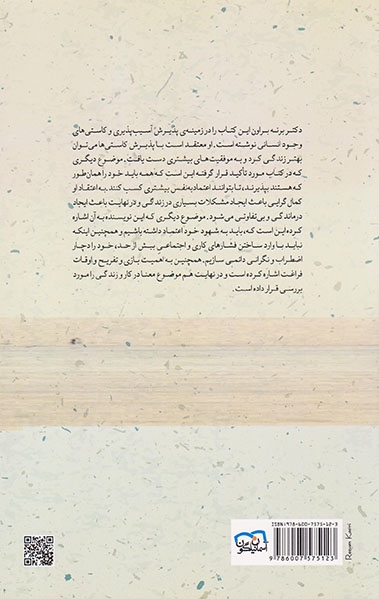 دکتر برنه براون این کتاب را در زمینه‌ی پذیرش آسیب‌پذیری و کاستی‌های
وجود انسانی نوشته است. او معتقد است با پذیرش کاستی‌ها می‌توان
بهتر زندگی کرد و به موفقیت‌های بیشتری دست یافت. موضوع دیگری
که در کتاب مورد تأکید قرار گرفته این است که همه باید خود را همان‌طور
که هستند بپذیرند، تا بتوانند اعتماد به نفس بیشتری کسب کنند. به اعتقاد او
کمال گرایی باعث ایجاد مشکلات بسیاری در زندگی و در نهایت باعث ایجاد
درماندگی و بی‌تفاوتی می‌شود. موضوع دیگری که این نویسنده به آن اشاره
کرده این است که، باید به شهود خود اعتماد داشته باشیم و همچنین اینکه
نباید با وارد ساختن فشارهای کاری و اجتماعی بیش از حد، خود را دچار
اضطراب و نگرانی دائمی سازیم. همچنین به اهمیت بازی و تفریح و اوقات
فراغت اشاره کرده است و در نهایت هم موضوع معنا در کار و زندگی را مورد
بررسی قرار داده است.
ISBN: 978-600-7575-12-3
9 786007 575123